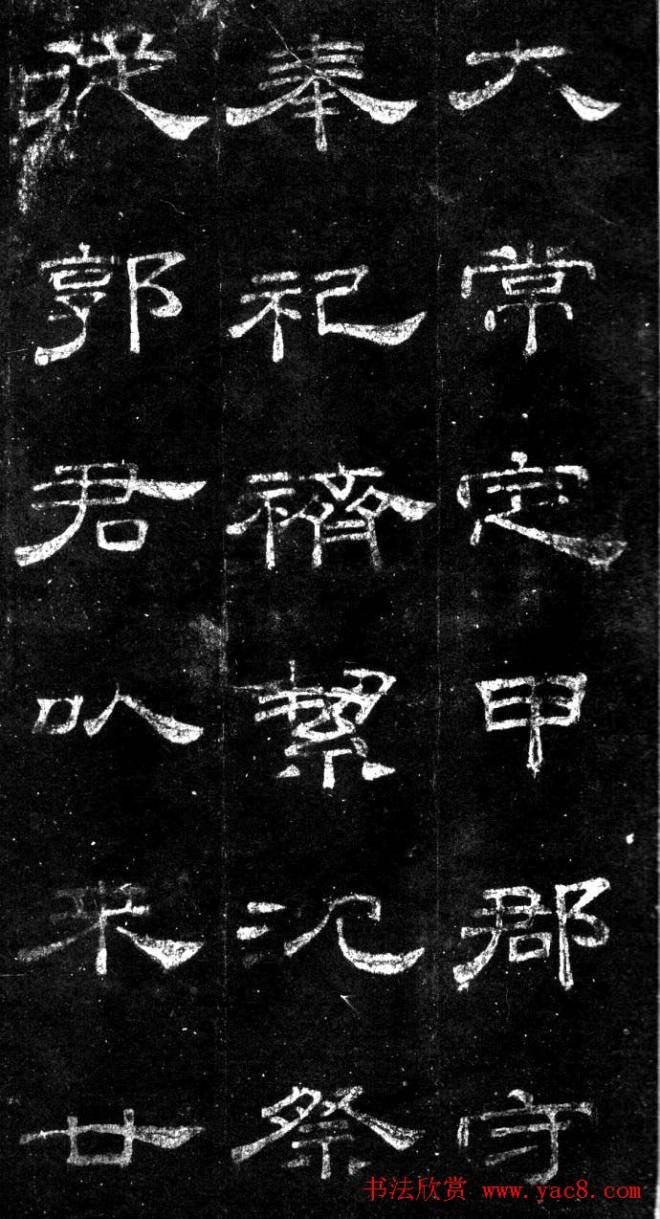 大常定甲郡守
奉祀䄢絜沈祭
從郭君以來廿
书法欣赏 www.yac8.com